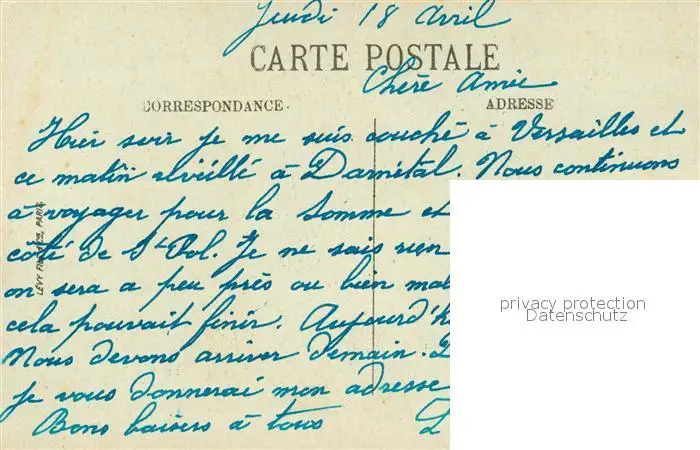 Jeudi 18 Avril
CARTE POSTALE
Chère Amie
CORRESPONDANCE
ADRESSE
Hier soir je me suis couché à Versailles et
ce matin réveillé à Darnétal. Nous continuons
à voyager pour la Somme et
côté de St Pol. Je ne sais rien
on sera a peu près ou bien mal
cela pouvait finir. Aujourd'h
Nous devons arriver demain.
je vous donnerai mon adresse
Bons baisers à tous
LEVY FILS ET Cie, PARIS
privacy protection
Datenschutz